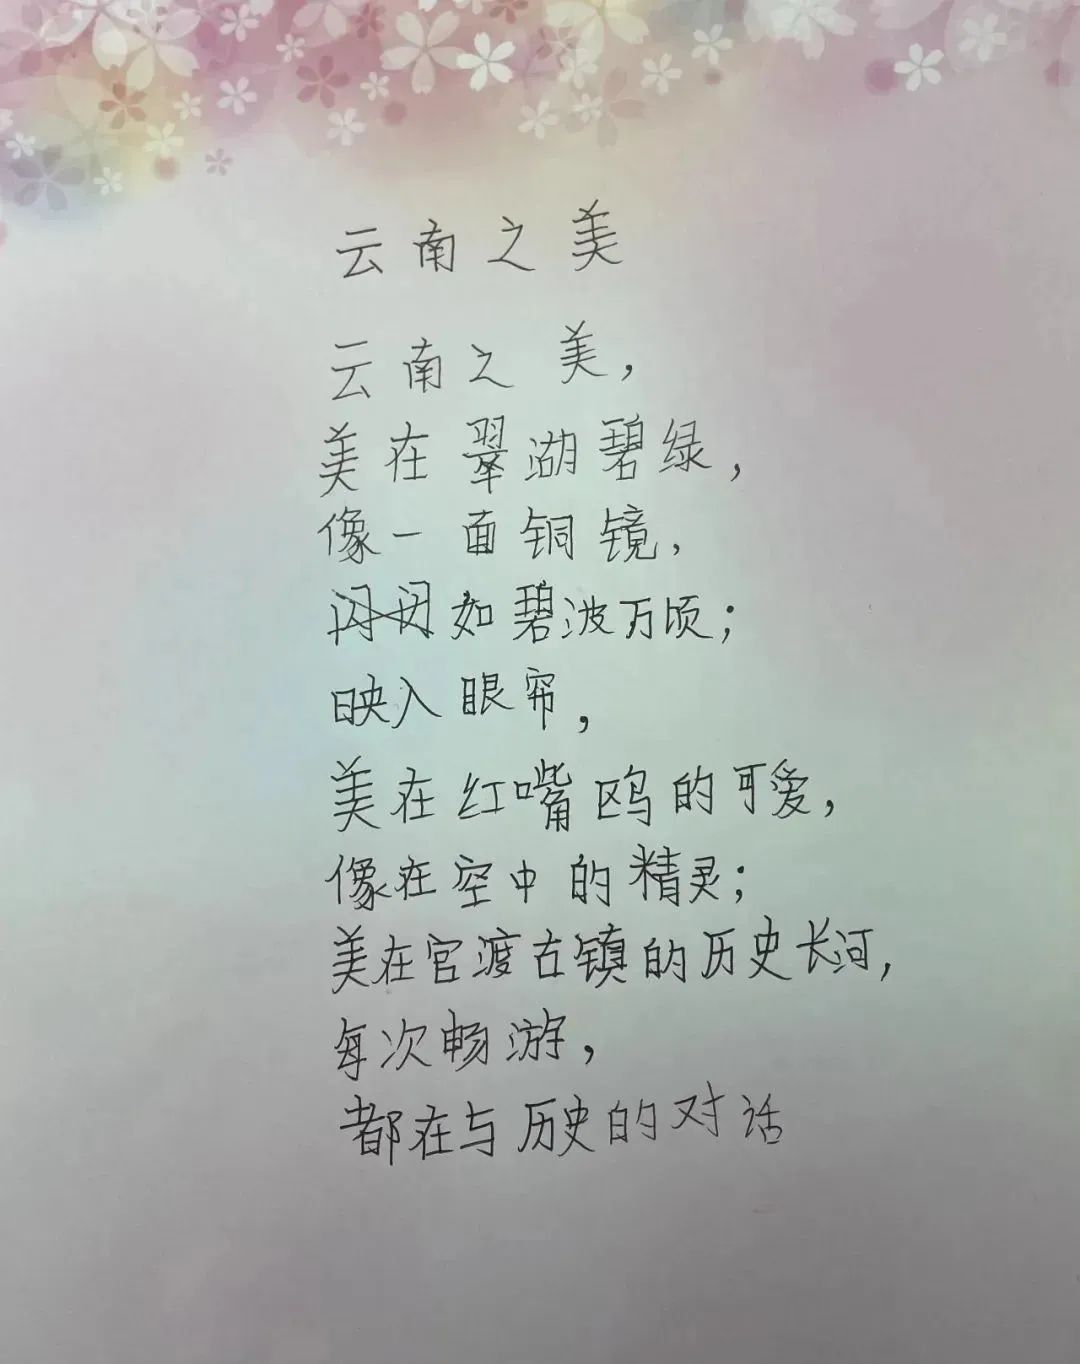 云南之美
云南之美，
美在翠湖碧绿，
像一面铜镜，
如碧波万顷；
映入眼帘，
美在红嘴鸥的可爱，
像在空中的精灵；
美在官渡古镇的历史长河，
每次畅游，
都在与历史的对话